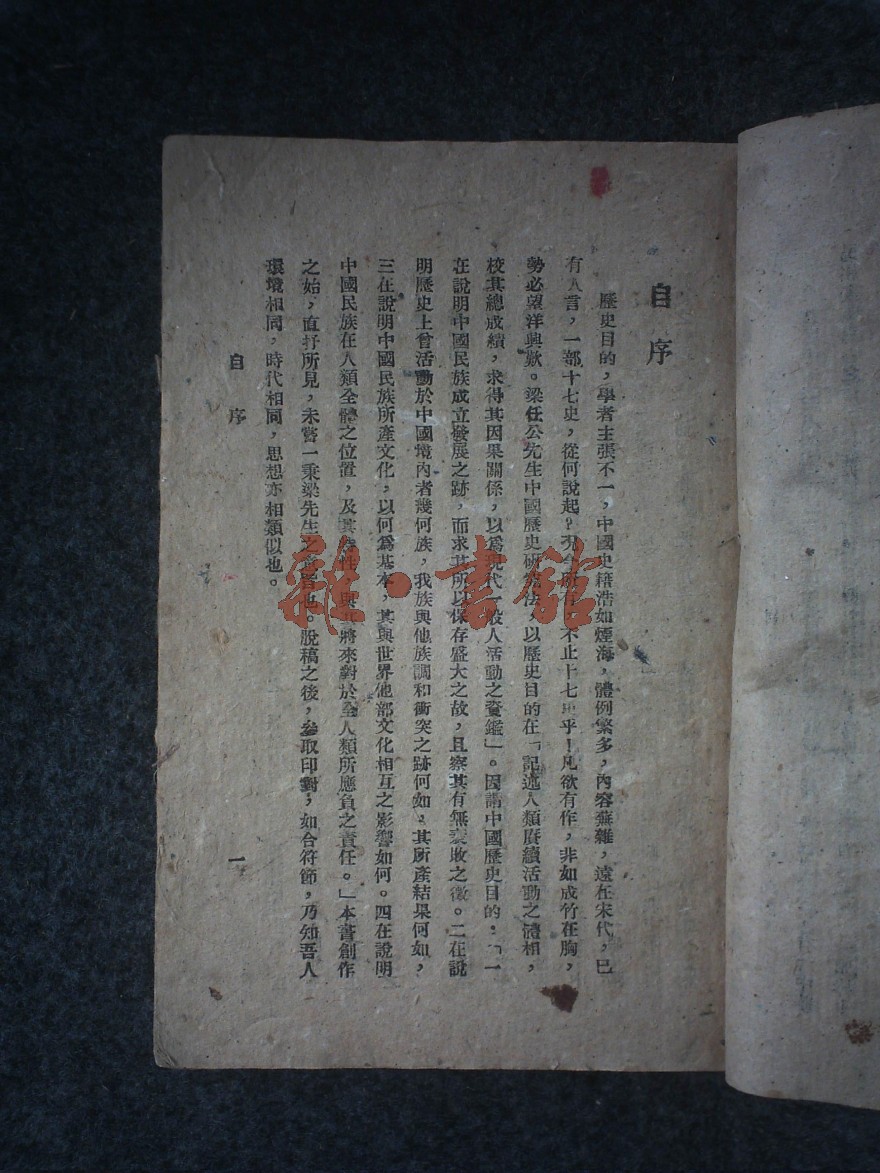 自序
歷史目的，學者主張不一，中國史籍浩如煙海，體例繁多，內容蕪雜，遠在宋代，已
有人言，一部十七史，從何說起？況今所有，不止十七史乎！凡欲有作，非如成竹在胸，
勢必望洋興歎。梁任公先生中國歷史研究法，以歷史目的在「記述人類賡續活動之體相，
校其總成績，求得其因果關係，以爲現代一般人活動之資鑑」。因謂中國歷史目的：「一
在說明中國民族成立發展之跡，而求其所以保存盛大之故，且察其有無衰敗之徵。二在說
明歷史上曾活動於中國境內者幾何族，我族與他族調和衝突之跡何如，其所產結果何如，
三在說明中國民族所產文化，以何爲基本，其與世界他部文化相互之影響如何。四在說明
中國民族在人類全體之位置，及其特性，與其將來對於全人類所應負之責任。」本書創作
之始，直抒所見，未嘗一秉梁先生之意旨也。脫稿之後，參取印對，如合符節，乃知吾人
環境相同，時代相同，思想亦相類似也。
自序
一
雜·書館